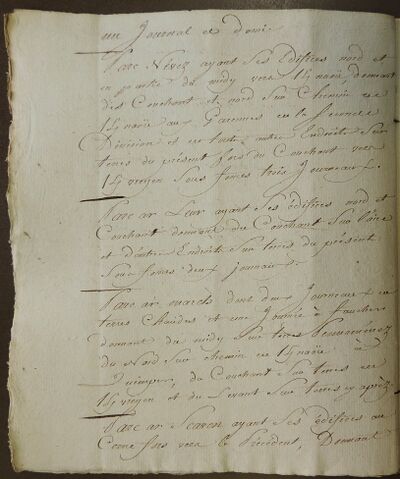 un Journal et demie
Parc Nevez ayant ses Edifices nord et
en partie du midy vers donnant
des Couchant et nord sur Chemin de
aux Garennes en la seconde
Division et en toute autre Endroits sur
terres du présent fors du Couchant vers
sous fonds trois Journeaux.
Parc ar Leur ayant ses édifices nord et
Couchant donnant du Couchant sur l'aire
et d'autre Endroits sur terres du présent
sous fonds deux journaux.
Parc ar marchs dont deux Journeaux de
terres Chaudes et une Journée à faucher
donnant du midy sur terres
du Nord sur chemin de à
Quimper, du Couchant sur terres de
et du Levant sur terres cy après.
Parc ar Scaven ayant ses édifices au
Cerne fors vers le Précédent, Donnant